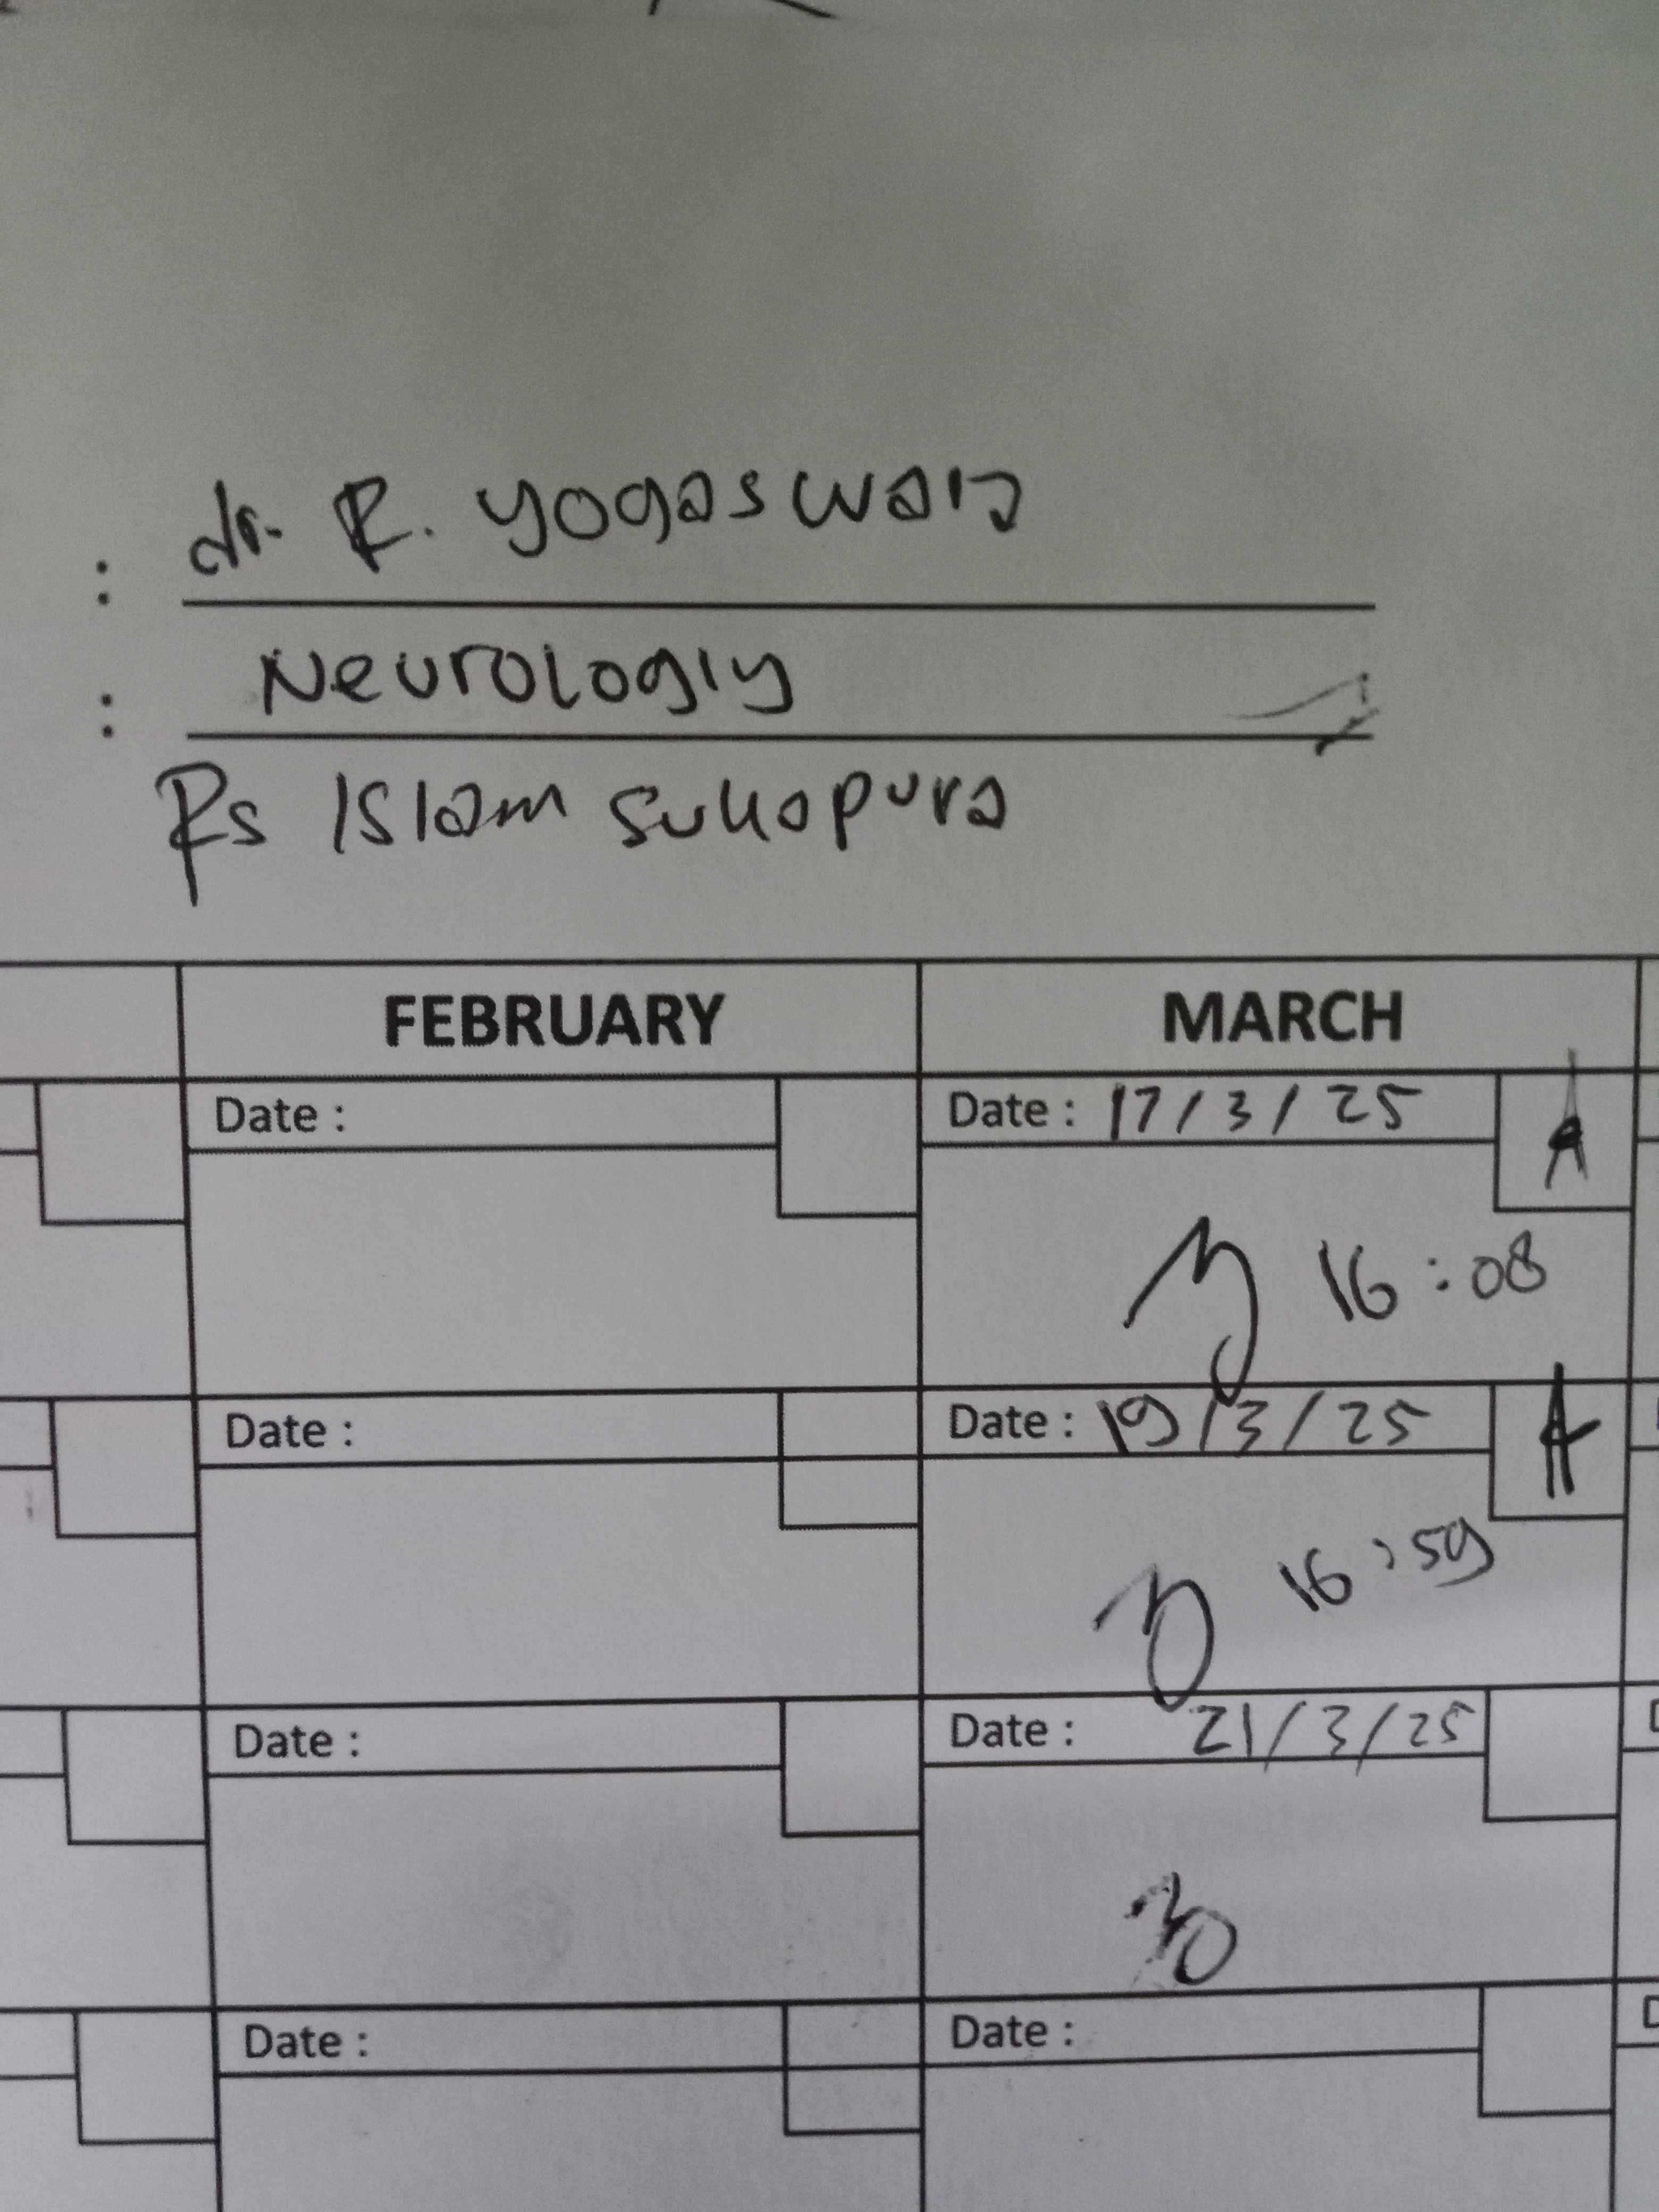 : dr. R. Yogaswara
: Neurologiy
Rs Islam Sukapura
FEBRUARY MARCH
Date : Date : 17/3/25 A
16:08
Date : Date : 19/3/25 A
16:59
Date : Date : 21/3/25
Date : Date :